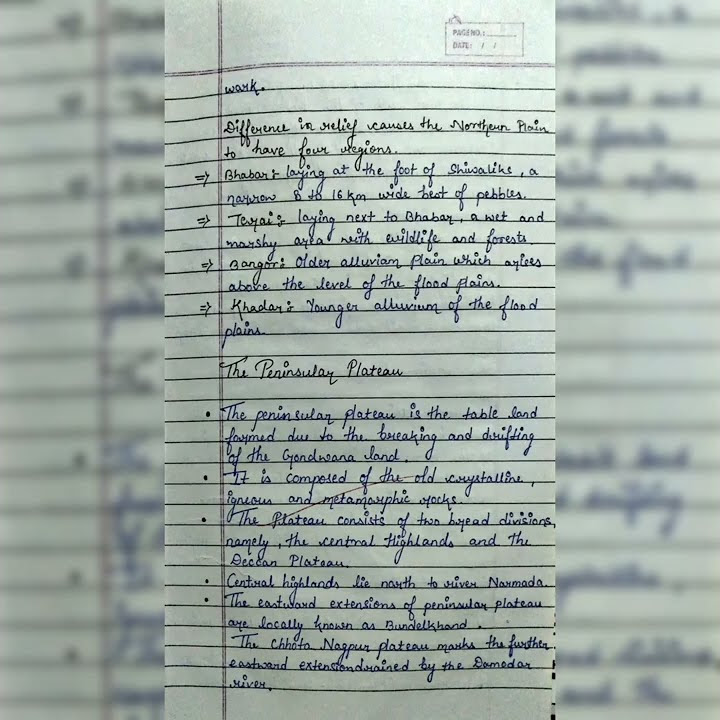 PAGE NO.:
DATE: / /
work.
Difference in relief causes the Northern Plain
to have four regions.
=> Bhabar :- laying at the foot of Shiwaliks, a
narrow 8 to 16 km wide best of pebbles.
=> Terai :- laying next to Bhabar, a wet and
marshy area with wildlife and forests.
=> Bangar :- Older alluvian Plain which arises
above the level of the flood plains.
=> Khadar :- Younger alluvium of the flood
plains.
The Peninsular Plateau
• The peninsular plateau is the table land
formed due to the breaking and drifting
of the Gondwana land.
• It is composed of the old crystalline,
igneous and metamorphic rocks.
• The Plateau consists of two broad divisions,
namely, the central Highlands and the
Deccan Plateau.
• Central highlands lie north to river Narmada.
• The eastward extensions of peninsular plateau
are locally known as Bundelkhand.
The Chhota Nagpur plateau marks the further
eastward extension drained by the Damodar
river.